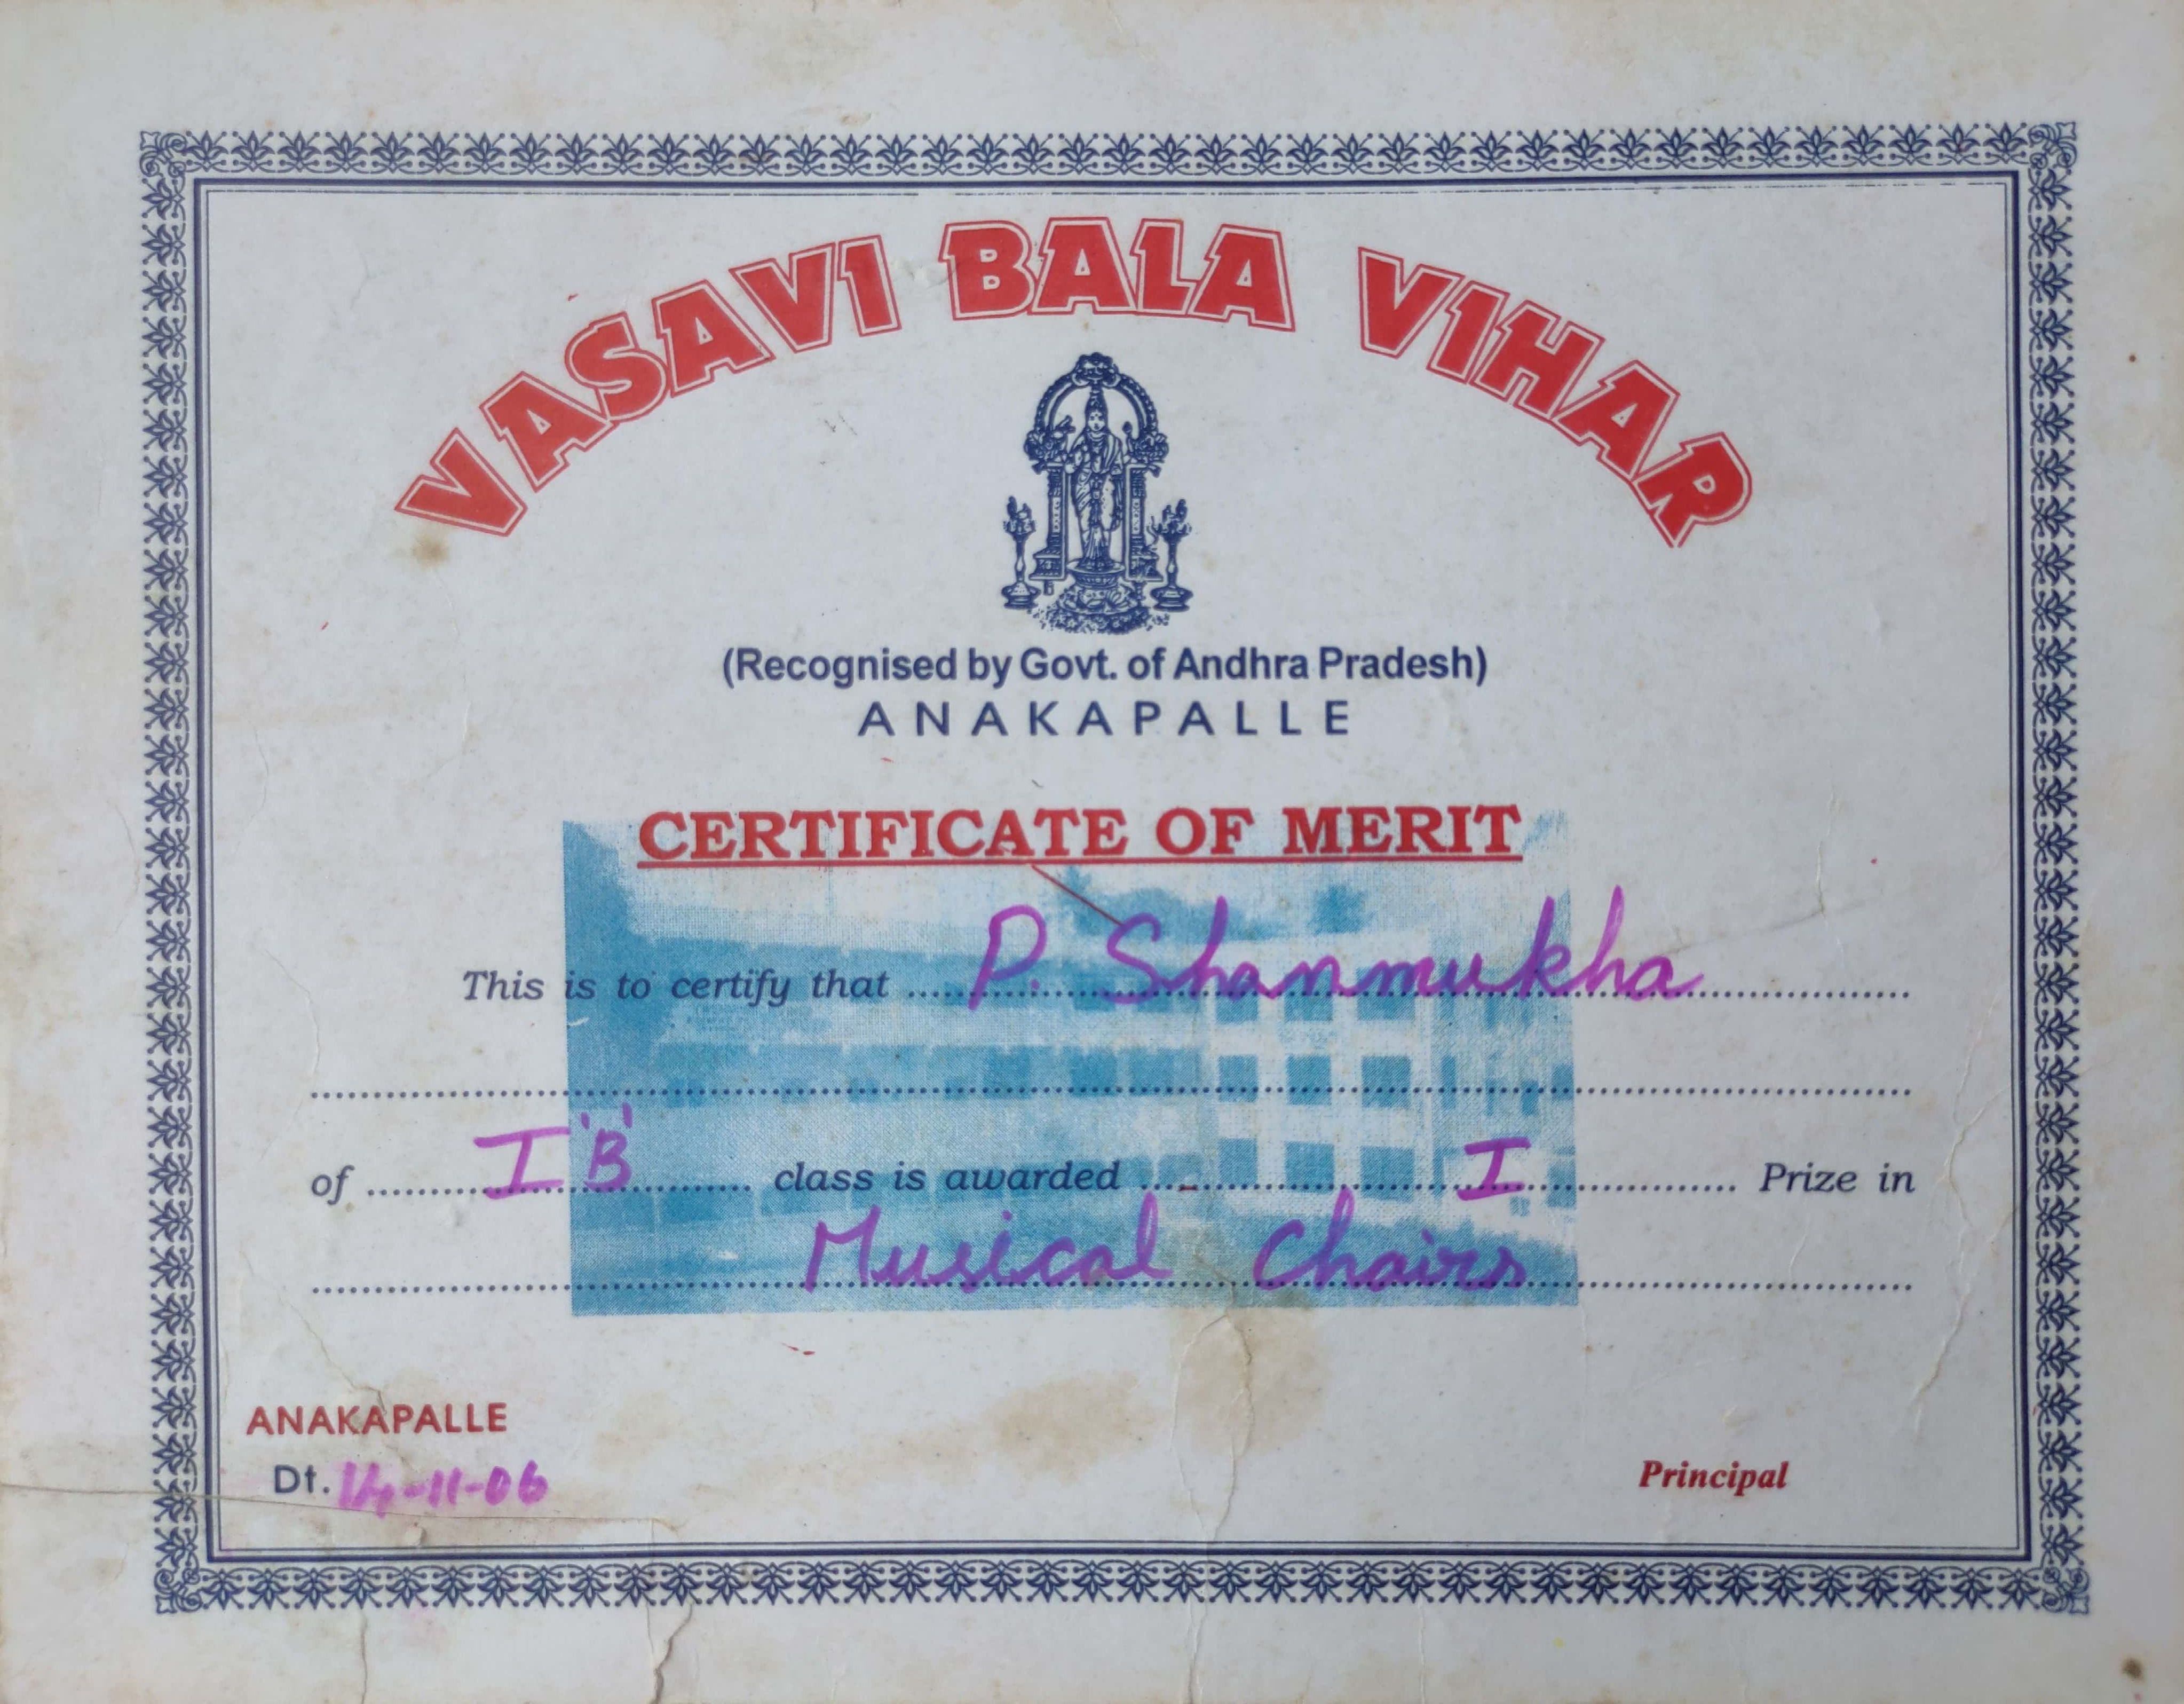 VASAVI BALA VIHAR
(Recognised by Govt. of Andhra Pradesh)
ANAKAPALLE
CERTIFICATE OF MERIT
This is to certify that ..... P. Shanmukha .....
of ..... I 'B' ..... class is awarded ..... I ..... Prize in
..... Musical Chairs .....
ANAKAPALLE
Dt. 14-11-06
Principal